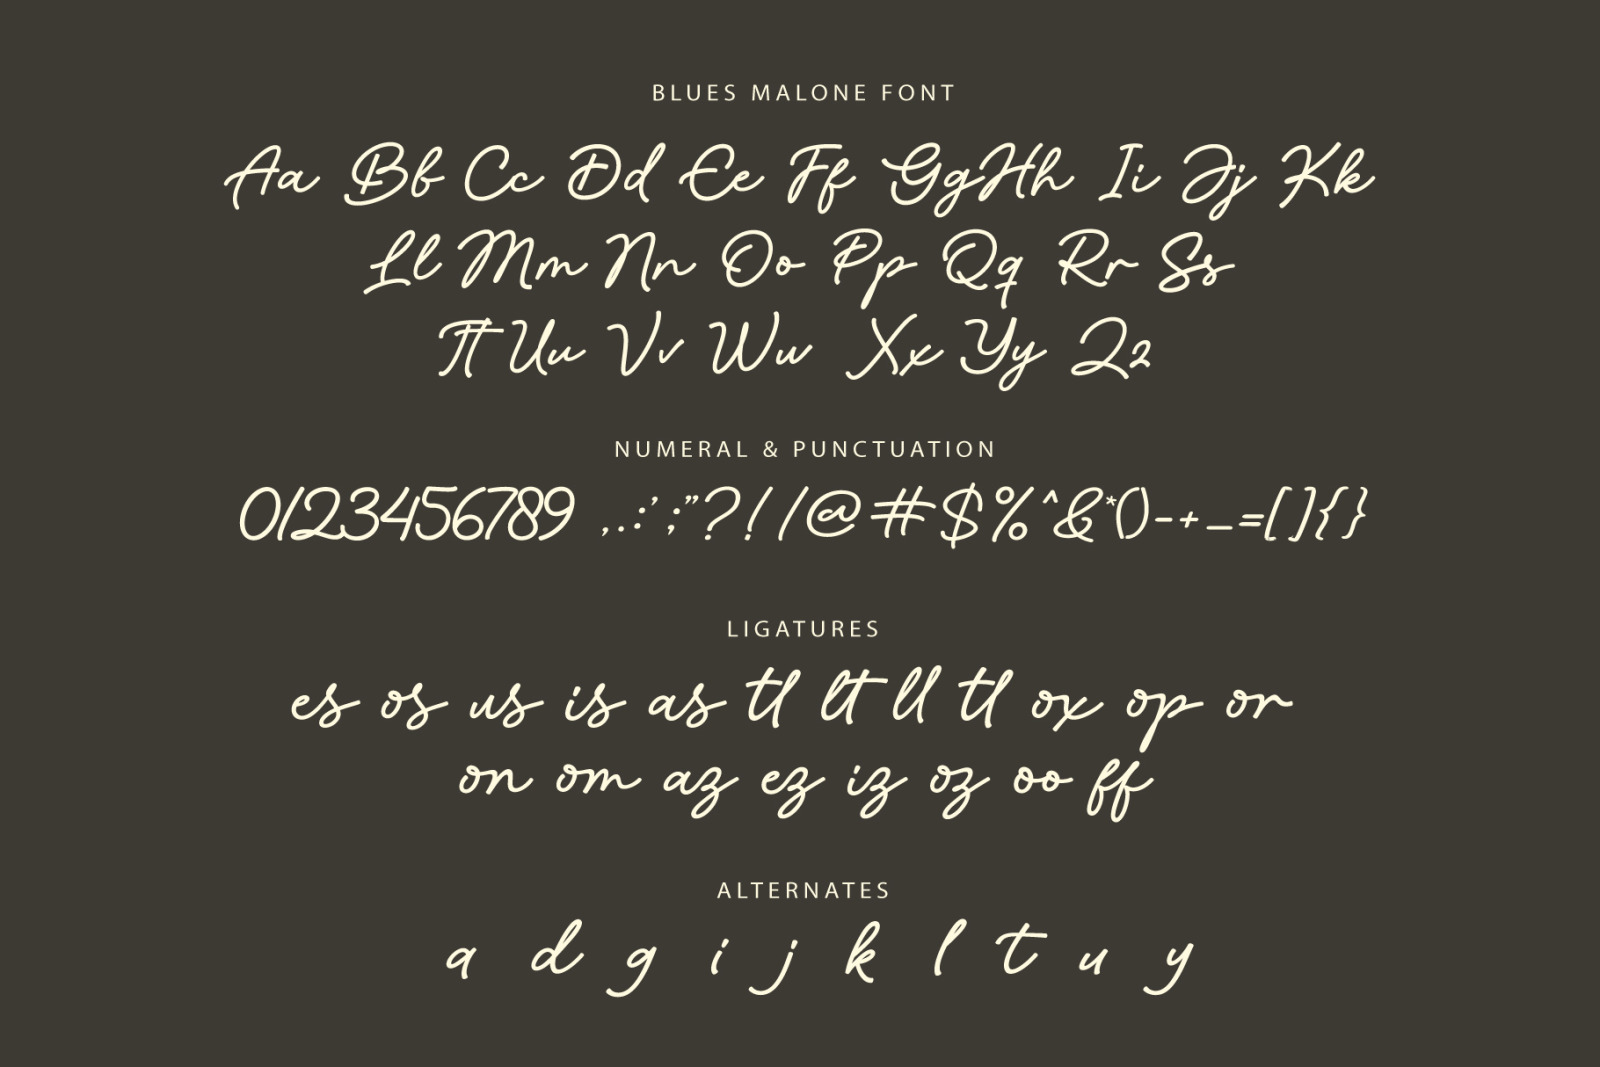 BLUES MALONE FONT
Aa Bb Cc Dd Ee Ff Gg Hh Ii Jj Kk
Ll Mm Nn Oo Pp Qq Rr Ss
Tt Uu Vv Ww Xx Yy Zz
NUMERAL & PUNCTUATION
0123456789 ,.:';"?!/@#$%^&*()-+_=[]{}
LIGATURES
es os us is as tl lt ll tl ox op or
on om az ez iz oz oo ff
ALTERNATES
a d g i j k l t u y